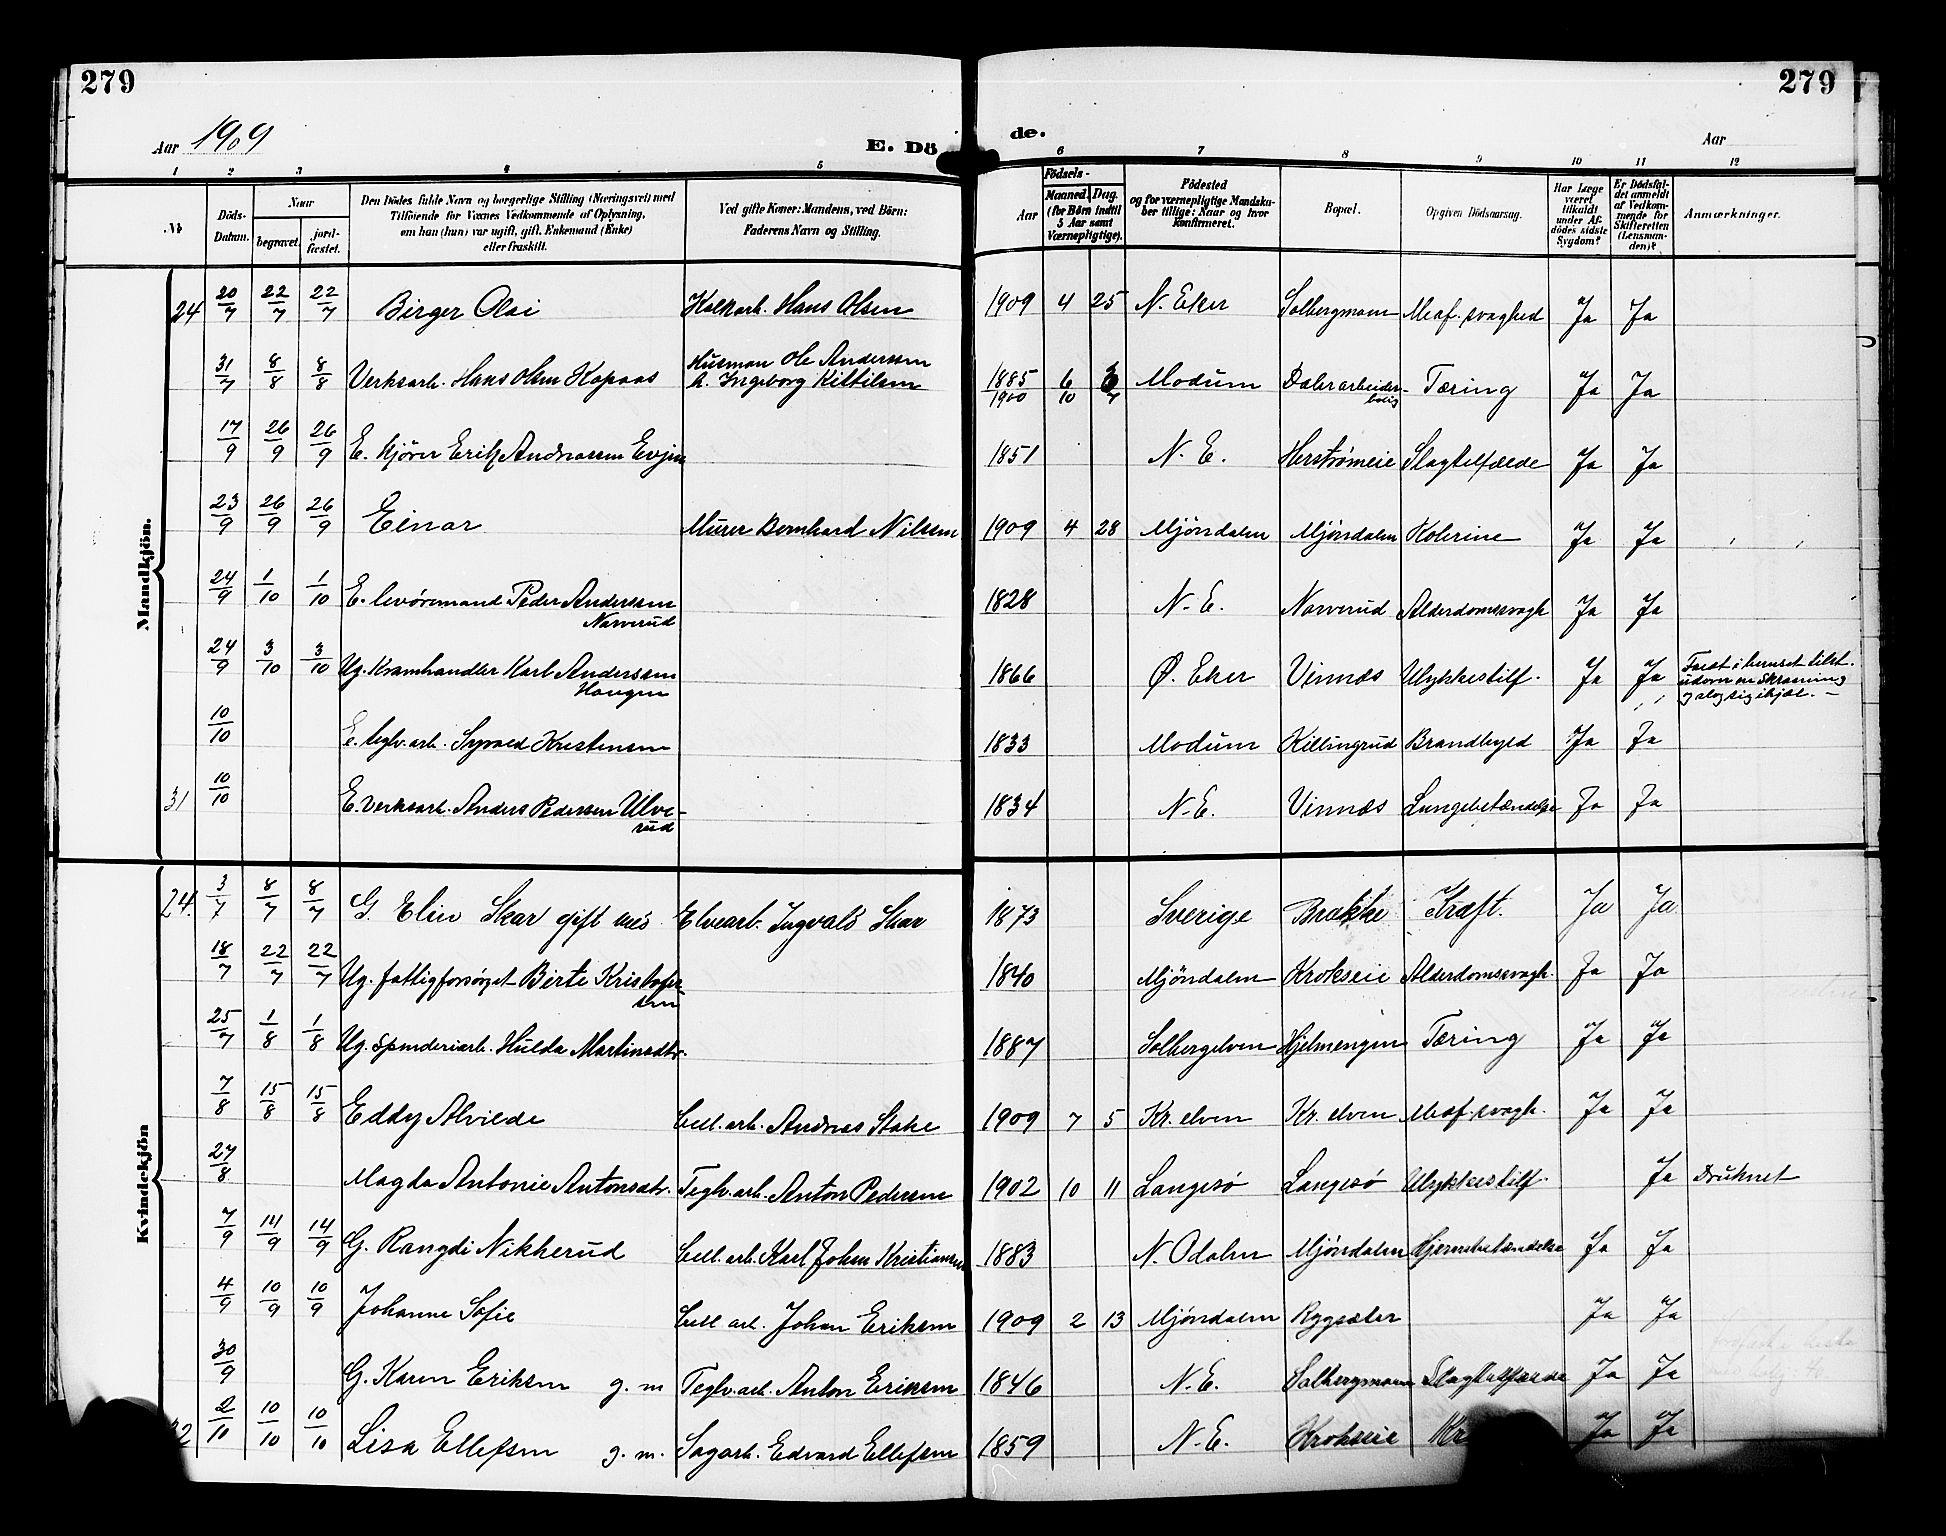 279
279
Aar 1909
E. Dö
de.
Aar
1 2 3 4 5 6 7 8 9 10 11 12
№
Döds-Datum.
Naar
begravet.
jord-fæstet.
Den Dödes fulde Navn og borgerlige Stilling (Næringsvei) med
Tilföiende for Voxnes Vedkommende af Oplysning,
om han (hun) var ugift, gift, Enkemand (Enke)
eller fraskilt.
Ved gifte Koner: Mandens, ved Börn:
Faderens Navn og Stilling.
Födsels-
Aar
Maaned. Dag.
(for Börn indtil
5 Aar samt
Værnepligtige).
Födested
og for værnepligtige Mandska-
ber tillige: Naar og hvor
konfirmeret.
Bopæl.
Opgiven Dödsaarsag.
Har Læge
været
tilkaldt
under Af-
dödes sidste
Sygdom?
Er Dödsfal-
det anmeldt
af Vedkom-
mende for
Skifteretten
(Lensman-
den)?
Anmærkninger.
Mandkjön.
24 20/7 22/7 22/7 Birger Olai Kalkarb. Hans Olsen 1909 4 25 N. Eker Solbergmoen Meaf. svaghed Ja Ja
31/7 8/8 8/8 Verksarb. Hans Olsen Kopaas Husman Ole Anderssen
h. Ingeborg Kittilsen 1885/1900 6/10 /7 Modum Daler arbeider-
bolig Tæring Ja Ja
17/9 26/9 26/9 E. Kjörer Erik Andreassen Evjen 1851 N. E. Herstrømeie Slagtilfælde Ja Ja
23/9 26/9 26/9 Einar Murer Bernhard Nilsen 1909 4 28 Mjöndalen Mjöndalen Kolerine Ja Ja
24/9 1/10 1/10 E. Peder Anderssen
Narverud 1828 N. E. Narverud Alderdomssvagh Ja Ja
24/9 3/10 3/10 Ug. Kramhandler Karl Anderssen
Haugen 1866 Ø. Eker Vinnæs Ulykkestilf. Ja Ja Faldt i beruset tilst.
udover en Skraaning
og slog sig ihjel. –
10/10 E. teglv. arb. Syvald Kristensen 1833 Modum Killingrud Ja Ja
31 10/10 E. Verksarb. Anders Pedersen Ulve-
rud 1834 N. E. Vinnæs Lungebetændelse Ja Ja
Kvindekjön
24. 3/7 8/7 8/7 G. Elin Skar gift med Elvearb. Ingvald Skar 1873 Sverige Brakke Kræft. Ja Ja
18/7 22/7 22/7 Ug. fattigforsörget Birte Kristofer-
sen 1840 Mjöndalen Krokseie Alderdomssvagh. Ja Ja
25/7 1/8 1/8 Ug. Spinderiarb. Hulda Martinsdtr. 1887 Solbergelven Hjelmengen Tæring Ja Ja
7/8 15/8 15/8 Eddy Alvilde Cell. arb. Andreas Stake 1909 7 5 Kr. elven Kr. elven Meaf. svagh. Ja Ja
27/8 Magda Antonie Antonsdtr. Teglv. arb. Anton Pedersen 1902 10 11 Langesö Langesö Ulykkestilf. Ja Druknet
7/9 14/9 14/9 G. Rangdi Nikkerud Cell. arb. Karl Johan Kristiansen 1883 N. Odalen Mjöndalen Hjernebetændelse Ja Ja
4/9 10/9 10/9 Johanne Sofie Cell arb. Johan Eriksen 1909 2 13 Mjöndalen Rygsæter Ja Ja
30/9 G. Karen Eriksen g. m Teglv. arb. Anton Eriksen 1846 N. E. Solbergmoen Slagtilfælde Ja Ja
32 2/10 10/10 10/10 Lisa Ellefsen g. m. Sagarb. Edvard Ellefsen 1859 N. E. Krokseie Ja Ja